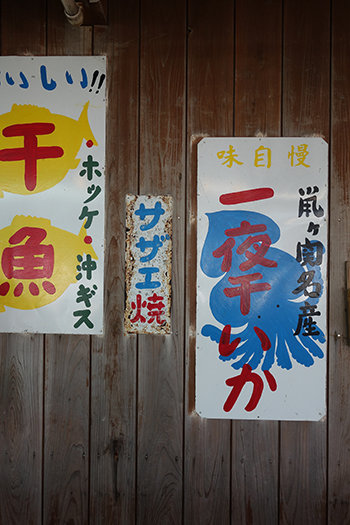 いしい!!
干魚
・ホッケ・沖ギス
サザエ焼
味自慢
鼡ヶ関名産
一夜干いか